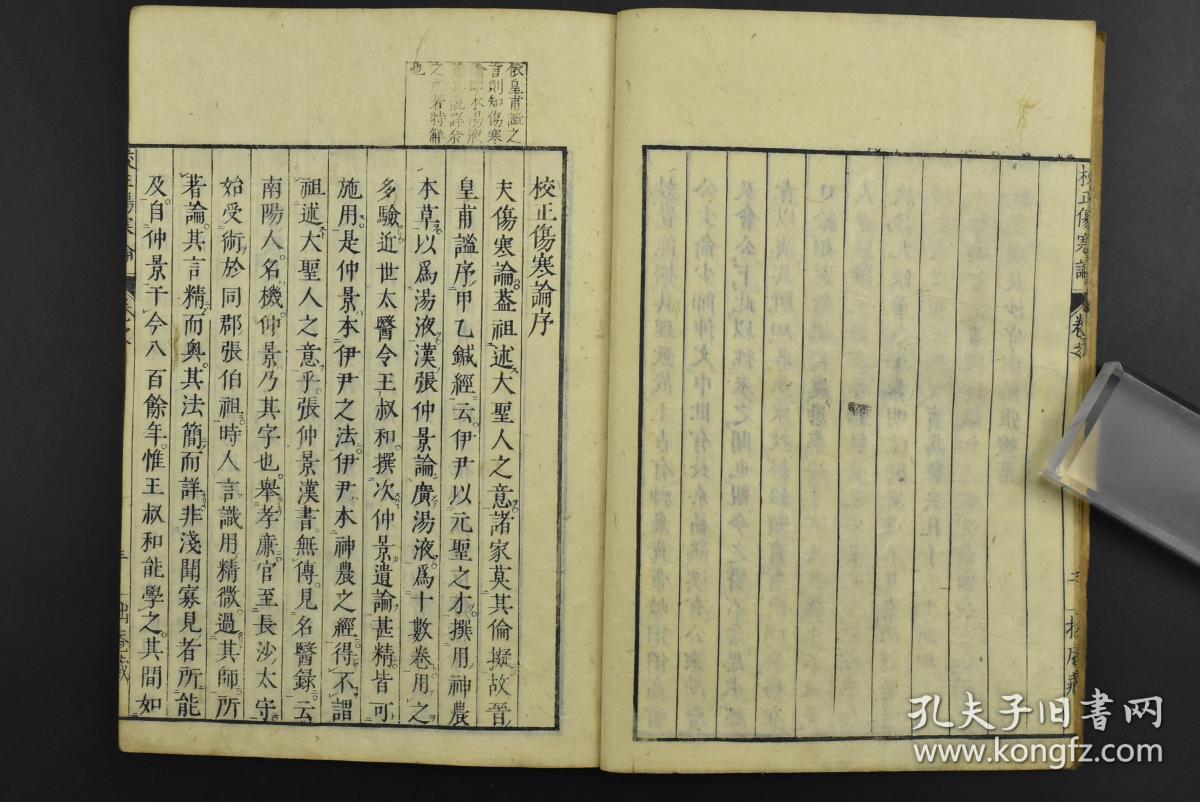 校正傷寒論
依皇甫謐之
言則知傷寒
論即本湯液
之
也
校正傷寒論序
夫傷寒論蓋祖述大聖人之意諸家莫其倫擬故晉
皇甫謐序甲乙鍼經云伊尹以元聖之才撰用神農
本草以爲湯液漢張仲景論廣湯液爲十數卷用之
多驗近世太醫令王叔和撰次仲景遺論甚精皆可
施用是仲景本伊尹之法伊尹本神農之經得不謂
祖述大聖人之意乎張仲景漢書無傳見名醫録云
南陽人名機仲景乃其字也舉孝廉官至長沙太守
始受術於同郡張伯祖時人言識用精微過其師所
著論其言精而奧其法簡而詳非淺聞寡見者所能
及自仲景于今八百餘年惟王叔和能學之其間如
孔夫子旧书网
www.kongfz.com